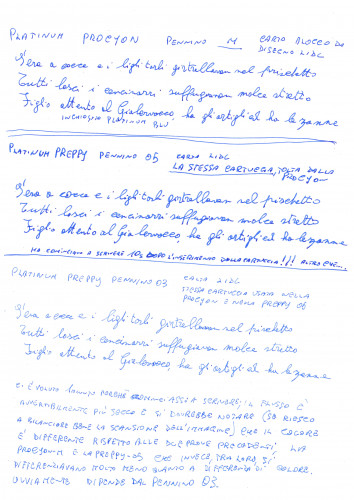 PLATINUM PROCYON PENNINO M CARTA BLOCCO DA
DISEGNO LIDL
S'era a cocce e i ligli torli girtrellavan nel pischetto
Tutti losci i cencinarri suffuggavan molce stretto
Figlio attento al Gialovocco, ha gli artigli ed ha le zanne
INCHIOSTRO PLATINUM BLU
PLATINUM PREPPY PENNINO 05 CARTA LIDL
LA STESSA CARTUCCIA, TOLTA DALLA
PROCYON
S'era a cocce e i ligli torli girtrellavan nel pischetto
Tutti losci i cencinarri suffuggavan molce stretto
Figlio attento al Gialovocco, ha gli artigli ed ha le zanne
HA COMINCIATO A SCRIVERE 10s DOPO L'INSERIMENTO DELLA CARTUCCIA!!!
PLATINUM PREPPY PENNINO 03 CARTA LIDL
STESSA CARTUCCIA USATA NELLA
PROCYON E NELLA PREPPY 05
S'era a cocce e i ligli torli girtrellavan nel pischetto
Tutti losci i cencinarri suffuggavan molce stretto
Figlio attento al Gialovocco, ha gli artigli ed ha le zanne
CI È VOLUTO PERCHÉ COMINCIASSE A SCRIVERE; IL FLUSSO È
PIÙ SECCO E SI DOVREBBE NOTARE (SE RIESCO
A BILANCIARE BENE LA SCANSIONE DELL'IMMAGINE) CHE IL COLORE
È DIFFERENTE RISPETTO ALLE DUE PROVE PRECEDENTI. LA
PROCYON M E LA PREPPY 05 CHE INVECE, TRA LORO, SI
DIFFERENZIAVANO MOLTO MENO QUANTO A DIFFERENZA DI COLORE.
OVVIAMENTE DIPENDE DAL PENNINO 03.